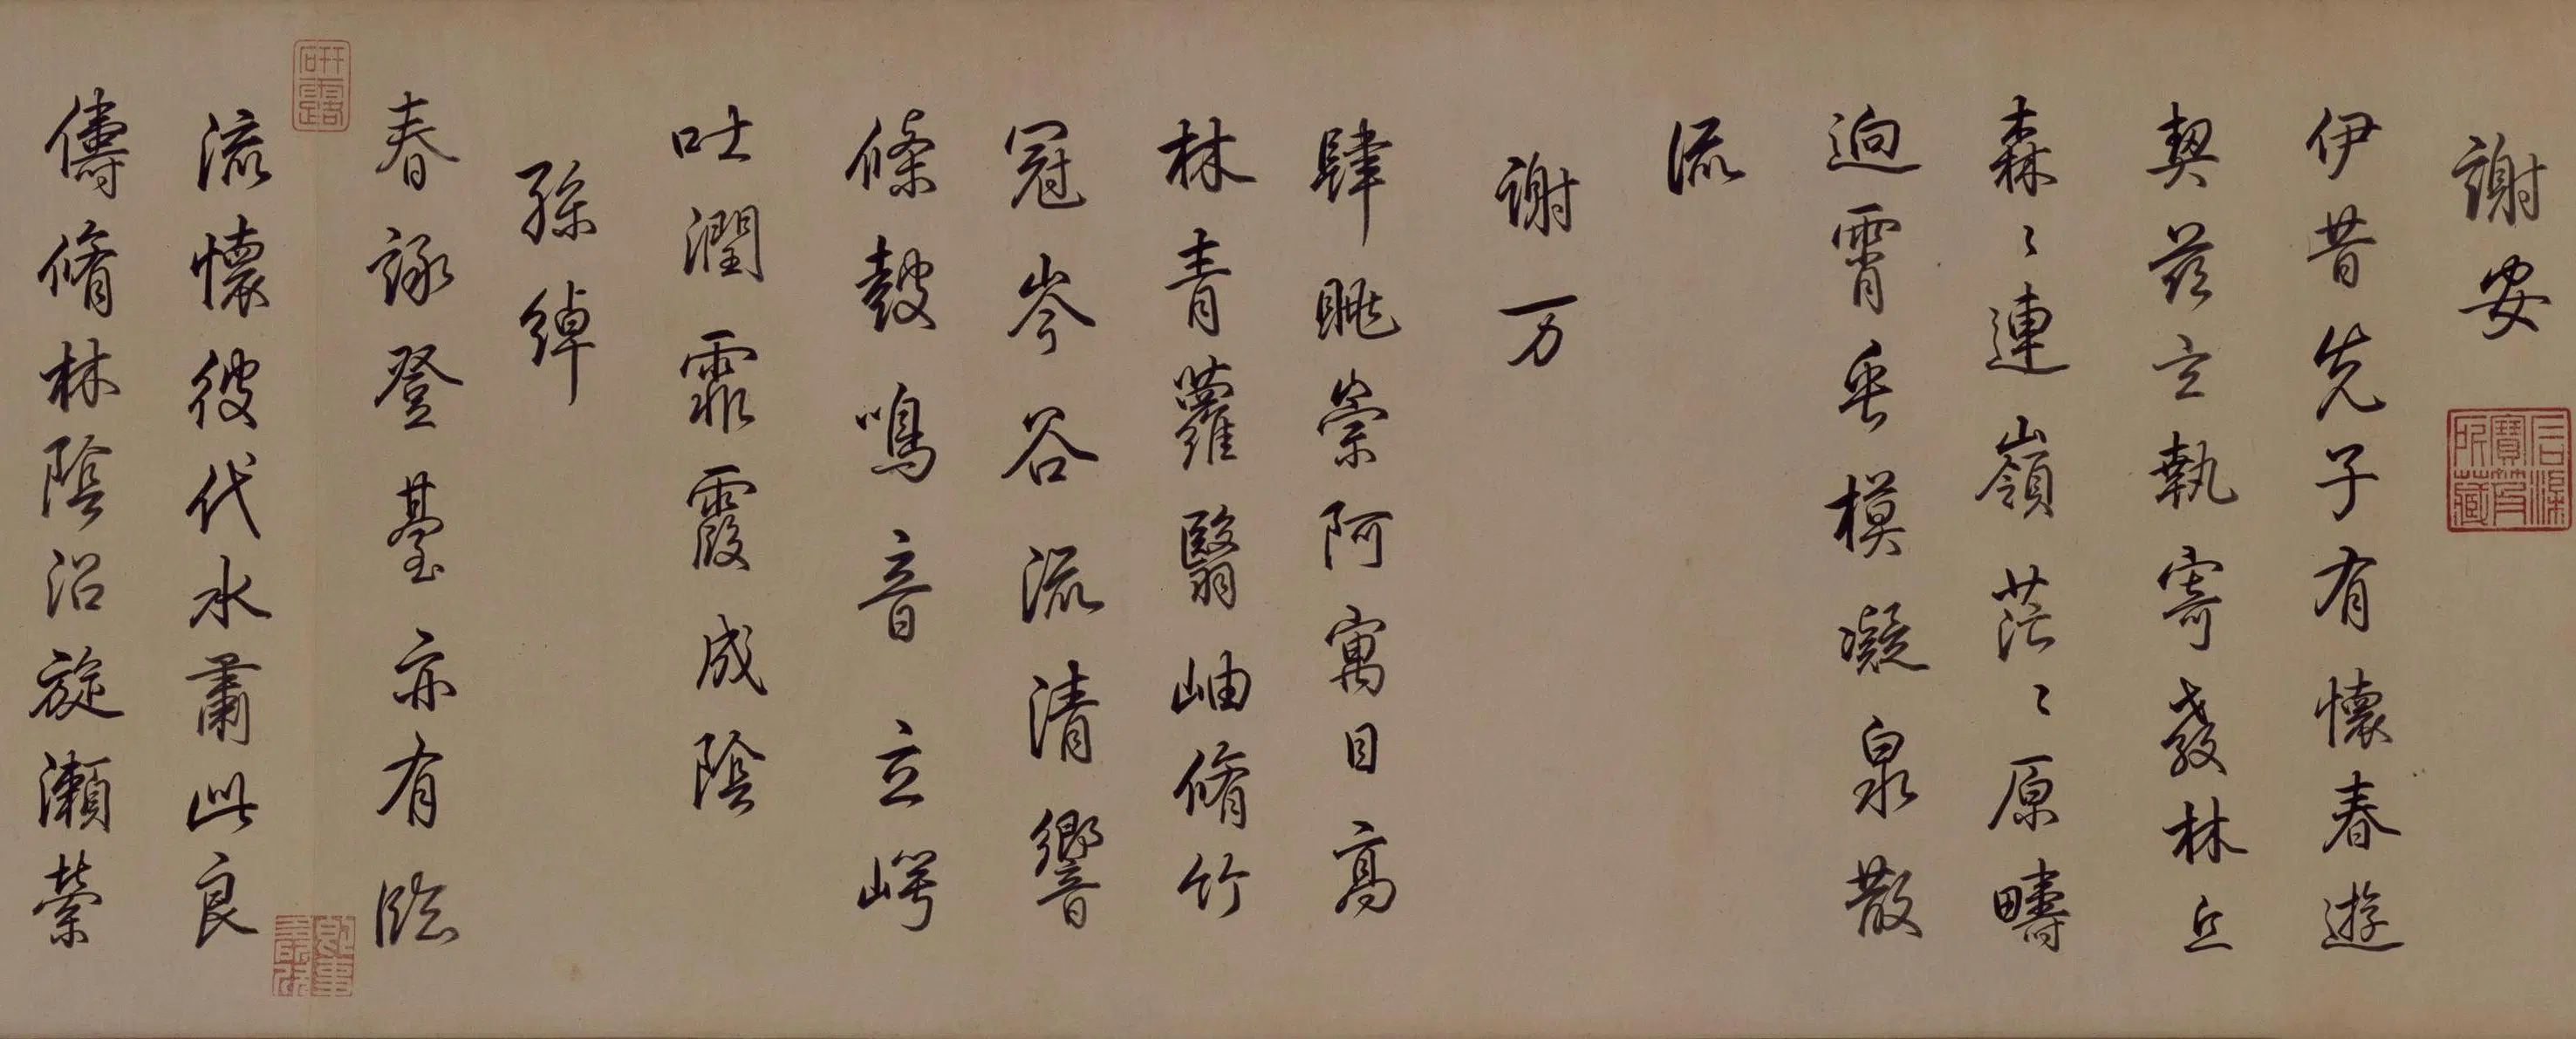 謝安
石渠寶笈所藏
伊昔先子有懷春遊
契茲言執寄敖林丘
森〻連嶺茫〻原疇
迥霄垂模凝泉散
流
謝万
肆眺崇阿寓目高
林青蘿翳岫脩竹
冠岑谷流清響
條鼓鳴音立崿
吐潤霏霞成陰
孫綽
春詠登臺亦有臨
研露
流懷彼代水肅此良
儔脩林陰沼旋瀨縈